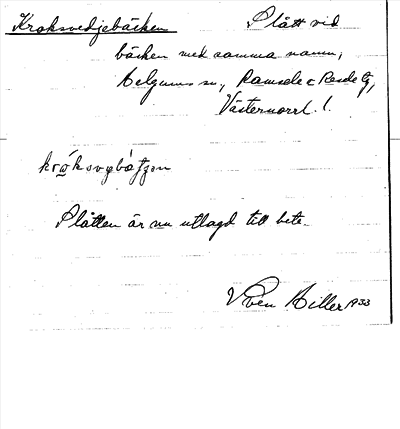 Kroksvedjebäcken Slått vid
bäcken med samma namn,
Helgums sn, Ramsele o Resele tg,
Västernorrl. l.
Slåtten är nu utlagd till bete.
Sven Hiller 1933